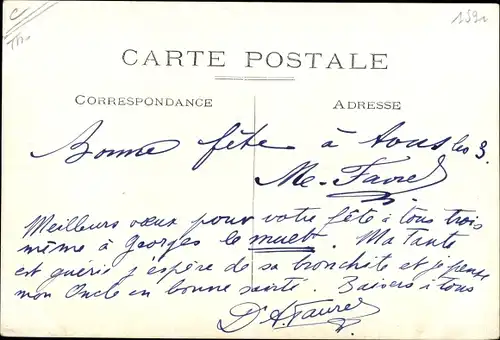 CARTE POSTALE
CORRESPONDANCE
ADRESSE
Bonne fête à tous les 3.
Me. Favre
Meilleurs vœux pour votre fête à tous trois
même à Georges le muet. Ma Tante
est guérie j'espère de sa bronchite et je pense
mon Oncle en bonne santé. Baisers à tous